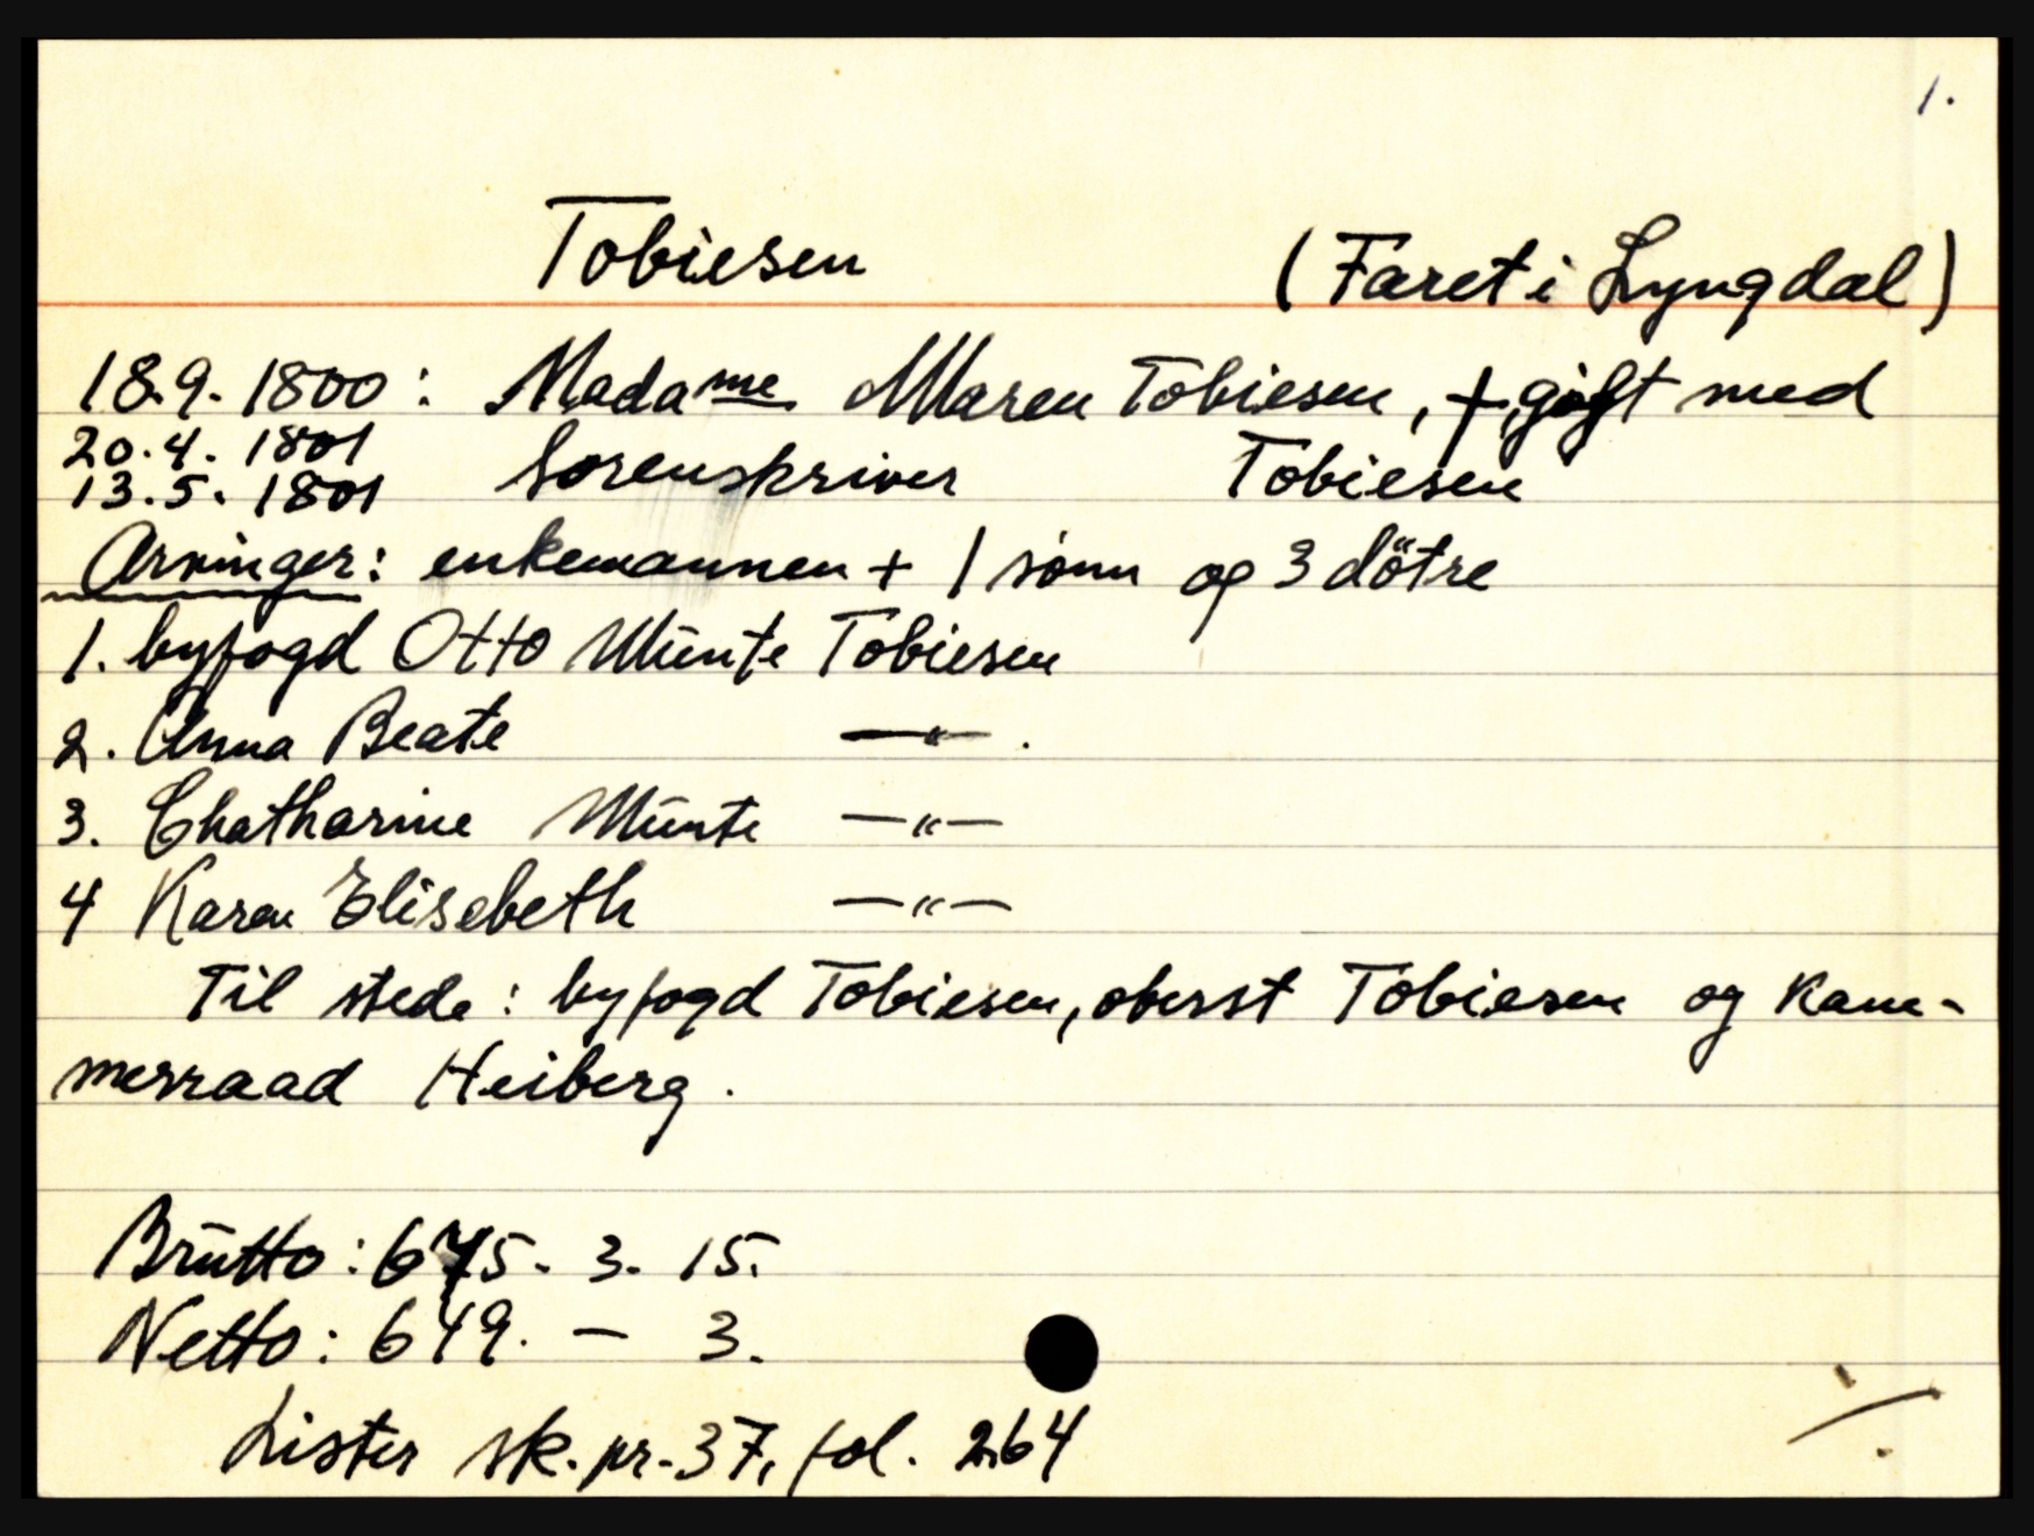 1.
Tobiesen (Faret i Lyngdal)
18.9.1800: Madame Maren Tobiesen, †, gift med
20.4.1801 Sorenskriver Tobiesen
13.5.1801
Arvinger: enkemannen + 1 sönn og 3 dötre
1. byfogd Otto Münte Tobiesen
2. Anna Beate —"— .
3. Chatharine Münte —"—
4 Karen Elisebeth —"—
Til stede: byfogd Tobiesen, oberst Tobiesen og Kam-
merraad Heiberg.
Brutto: 675. 3. 15.
Netto: 649. — 3.
Lister sk.pr. 37, fol. 264
./.